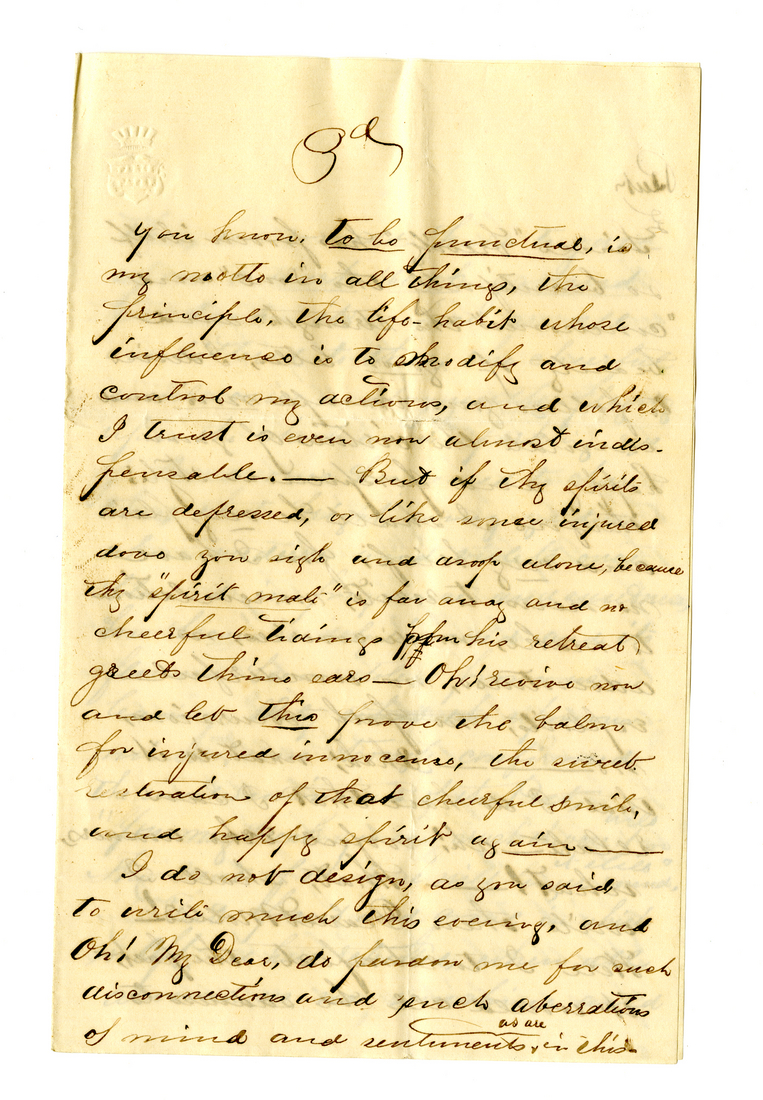 3d
you know, to be punctual, is
my motto in all things, the
principle, the life-habit whose
influence is to modify and
control my actions, and which
I trust is even now almost indis-
pensable. — But if thy spirits
are depressed, or like some injured
dove you sigh and droop alone, because
thy "spirit mate" is far away and no
cheerful tidings from his retreat
greets thine ears — Oh! revive now
and let this prove the balm
for injured innocense, the sweet
restoration of that cheerful smile,
and happy spirit again —
I do not design, as you said
to write much this evening, and
Oh! My Dear, do pardon me for such
disconnections and such aberrations
as are
of mind and sentiments, in this-